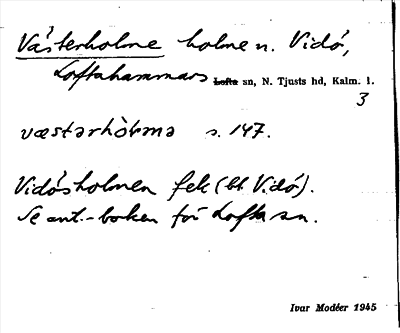 Västerholme holme n. Vidö,
Loftahammars Lofta sn, N. Tjusts hd, Kalm. l.
3
væstərhòlmə s. 147.
Vidösholmen fek (bl. Vidö).
Se ant.-boken för Lofta sn.
Ivar Modéer 1945